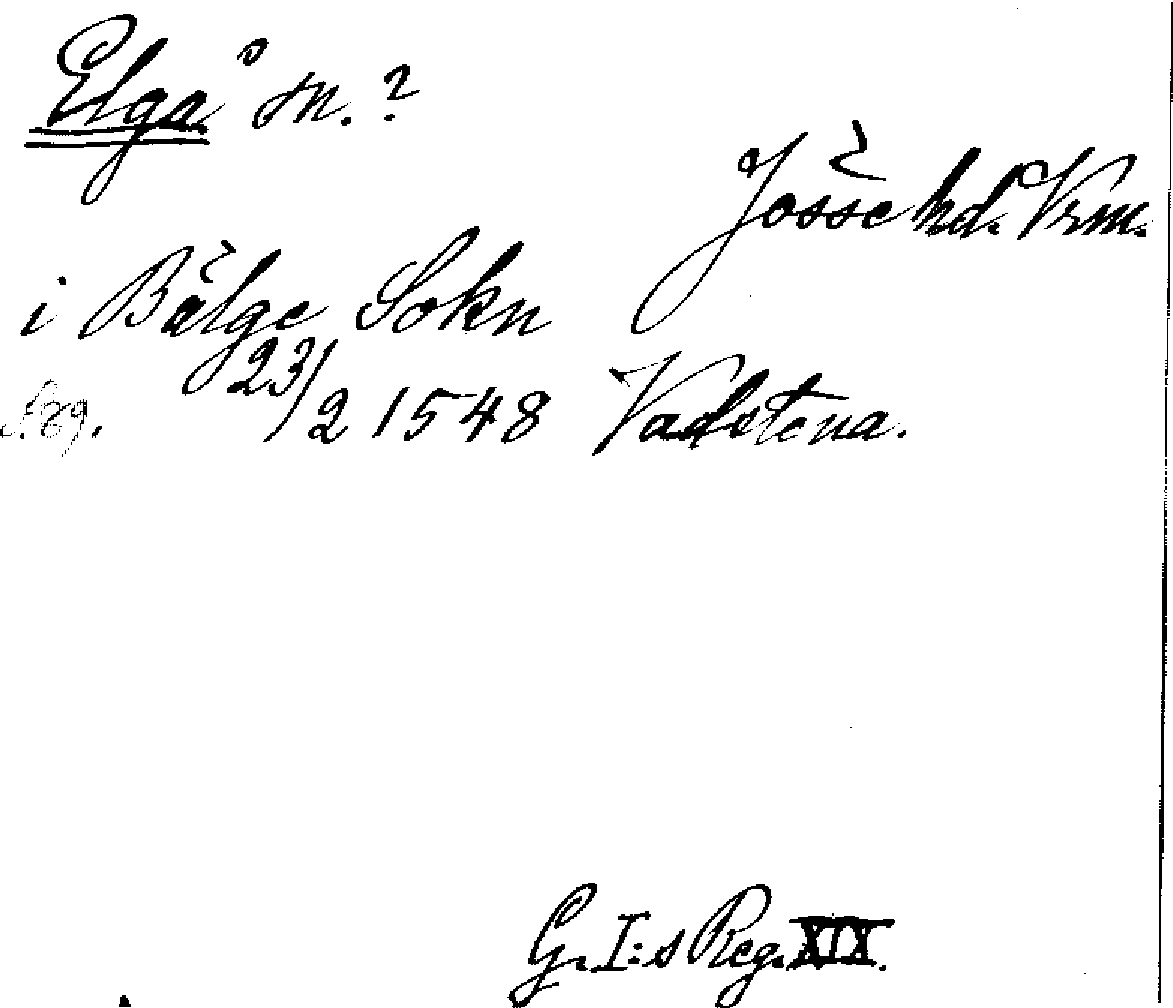 Elgå sn.?
Jösse hd. Vrm.
i Bälge Sokn
s. 89.
23/2 1548 Vadstena.
G. I:s Reg. XIX.